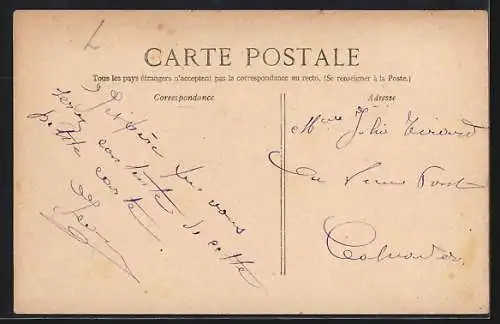 L
CARTE POSTALE
Tous les pays étrangers n'acceptent pas la correspondance au recto. (Se renseigner à la Poste.)
Correspondance
Adresse
J'espère que vous
serez contente de cette
petite carte
Julia
Au Vieux Pont